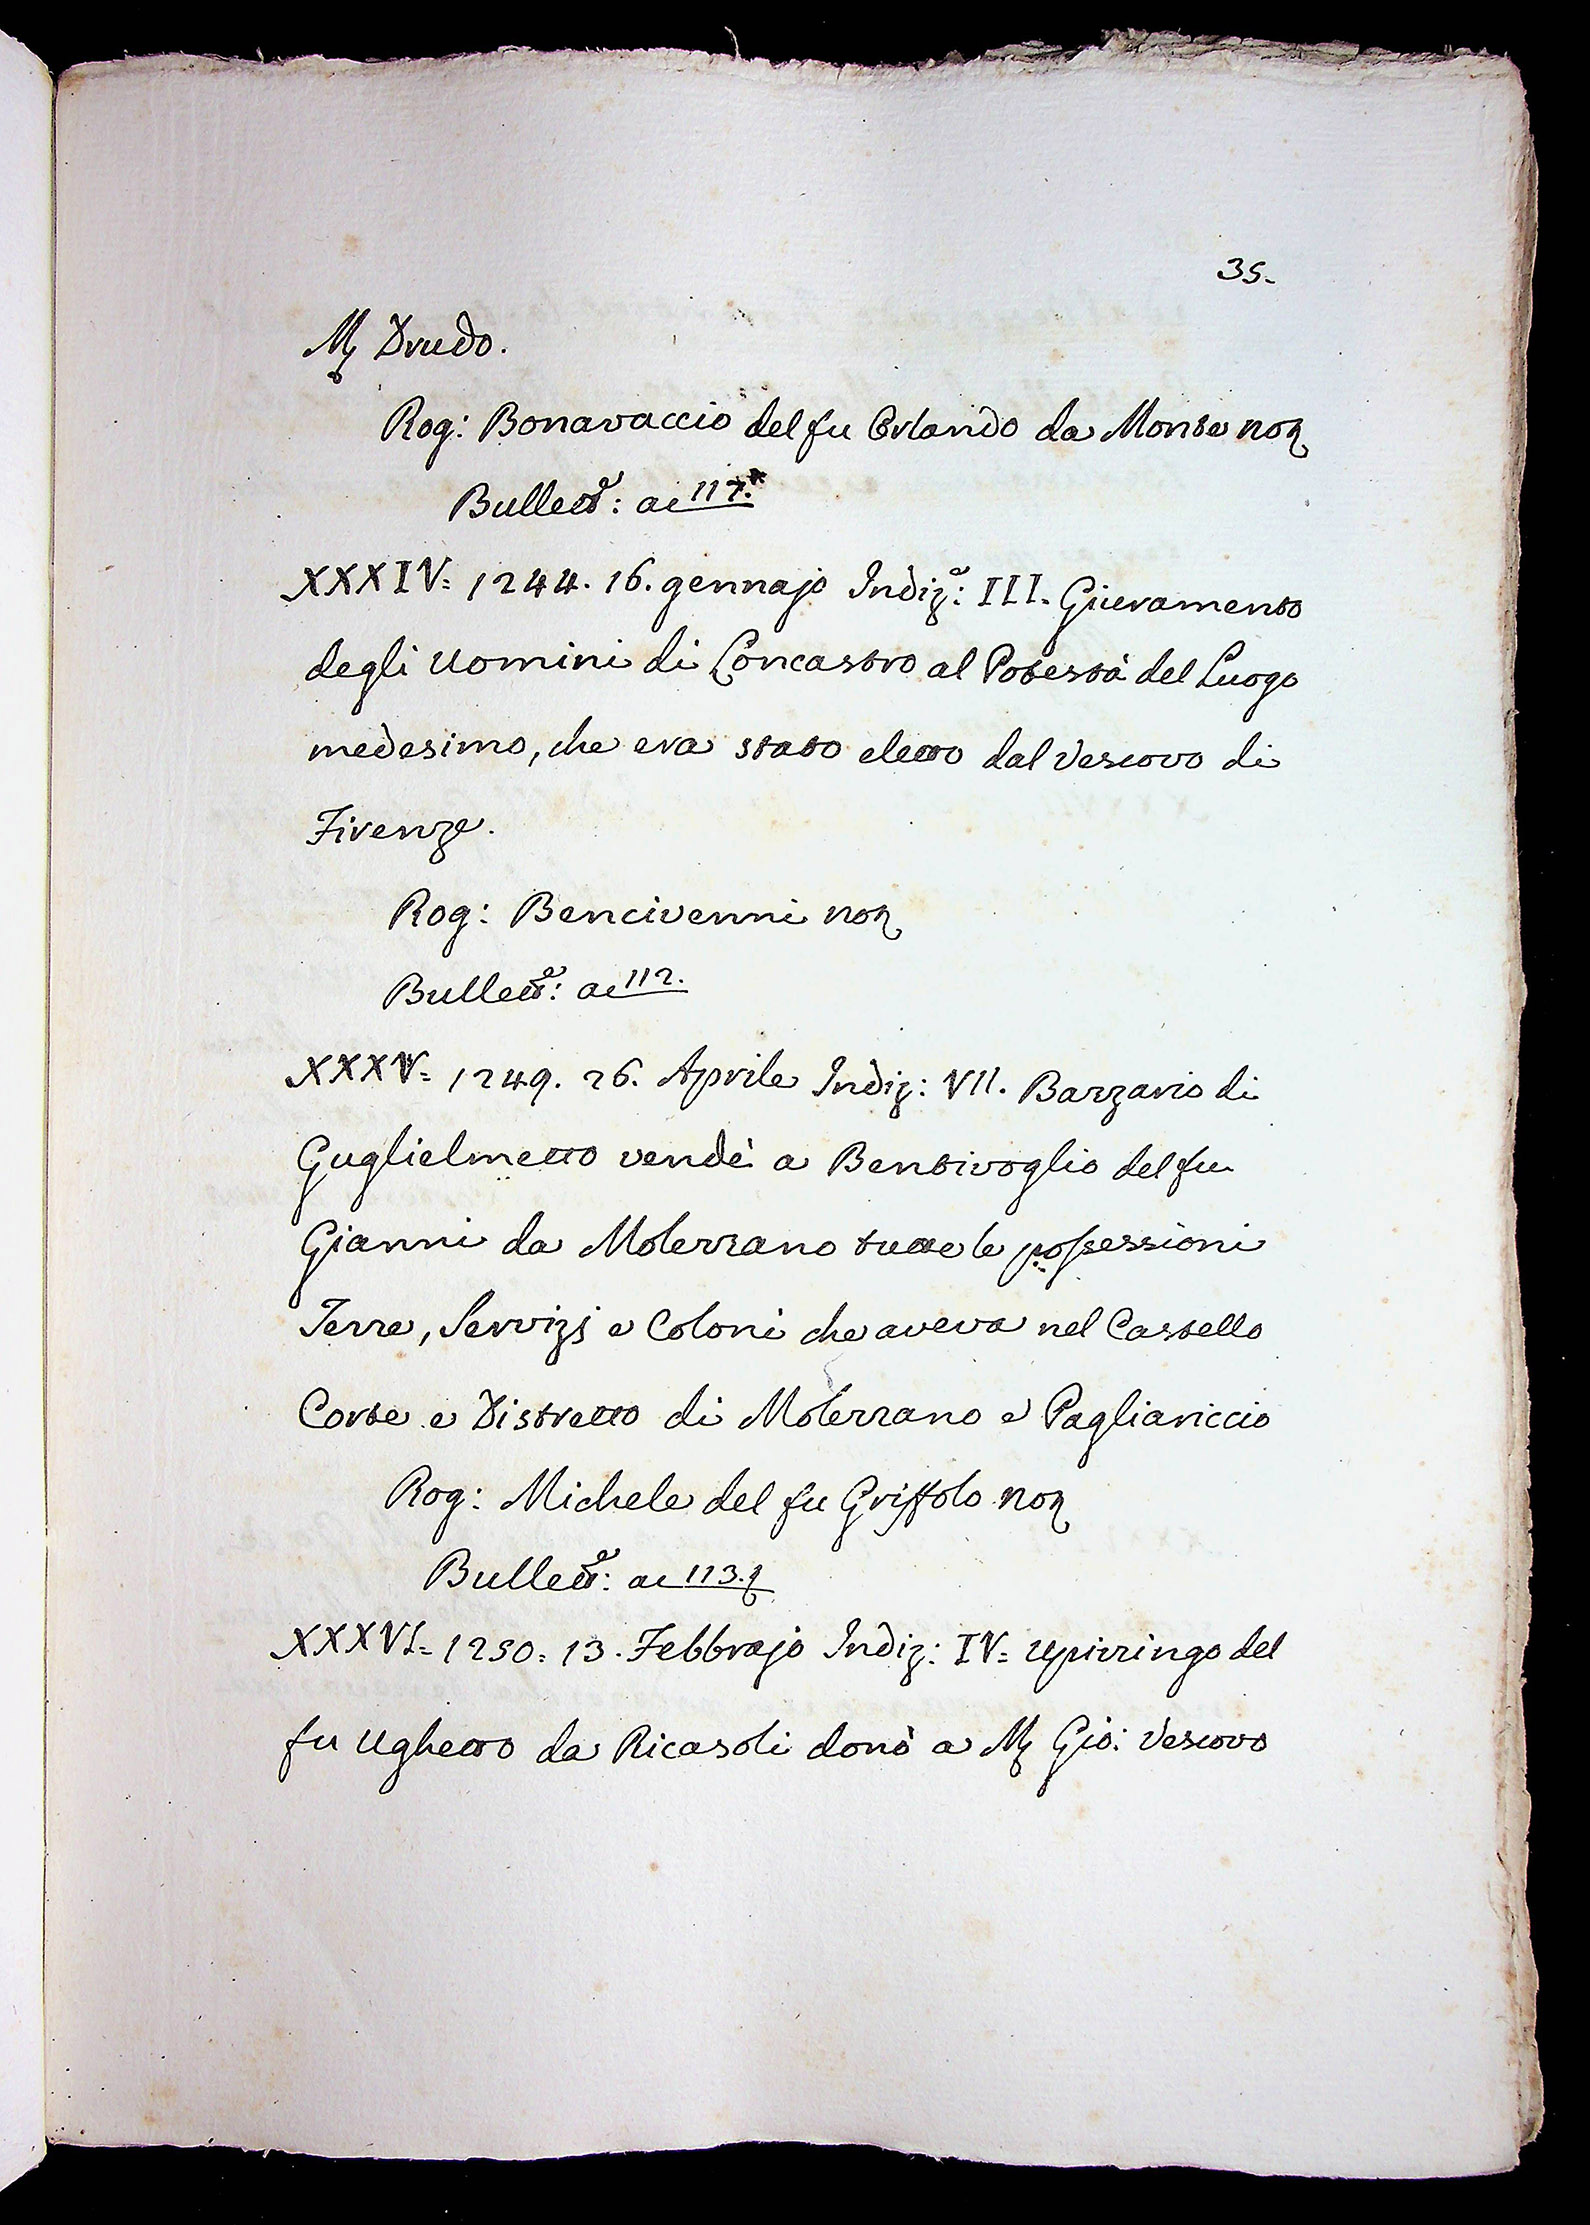 35.
M. Drudo.
Rog: Bonaraccio del fu Orlando da Monte not
Bullett.e: a c 117.
XXXIV= 1244. 16. gennajo Indiz.e: III. Giuramento
degli Uomini di Concastro al Potestà del Luogo
medesimo, che era stato eletto dal Vescovo di
Firenze.
Rog: Bencivenni not
Bullett.e: a c 112.
XXXV= 1249. 26. Aprile Indiz: VII. Barzario di
Guglielmetto vendè a Bentivoglio del fu
Gianni da Molezzano tutte le possessioni
Terre, Servizj e Coloni che aveva nel Castello
Corte e Distretto di Molezzano e Pagliariccio
Rog: Michele del fu Griffolo not
Bullett.e: a c 113.
XXXVI= 1250= 13. Febbrajo Indiz: IV= Upizzingo del
fu Ughetto da Ricasoli donò a M. Gio: Vescovo